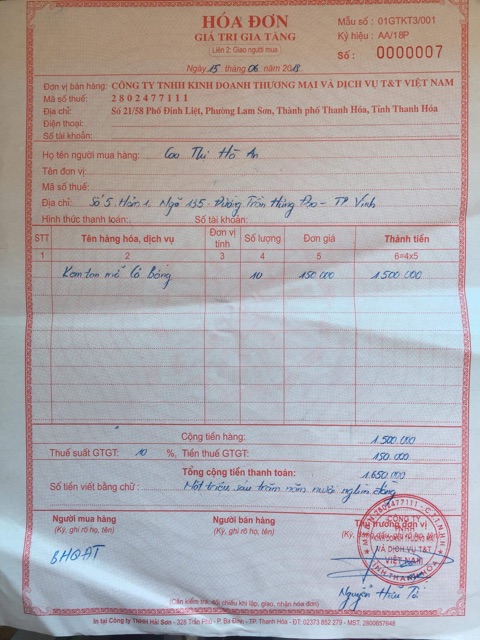 HÓA ĐƠN
GIÁ TRỊ GIA TĂNG
Liên 2: Giao người mua
Mẫu số : 01GTKT3/001
Ký hiệu : AA/18P
Số : 0000007
Ngày 15 tháng 06 năm 2018
Đơn vị bán hàng: CÔNG TY TNHH KINH DOANH THƯƠNG MẠI VÀ DỊCH VỤ T&T VIỆT NAM
Mã số thuế: 2802477111
Địa chỉ: Số 21/58 Phố Đinh Liệt, Phường Lam Sơn, Thành phố Thanh Hóa, Tỉnh Thanh Hóa
Điện thoại:
Số tài khoản:
Họ tên người mua hàng: Cao Thị Hà An
Tên đơn vị:
Mã số thuế:
Địa chỉ: Số 5. 1. Ngõ 195. Đường Trần Hưng Đạo - TP Vinh
Hình thức thanh toán: Số tài khoản:
STT Tên hàng hóa, dịch vụ Đơn vị tính Số lượng Đơn giá Thành tiền
1 2 3 4 5 6=4x5
Kem tan mỡ Cô Bông 10 150.000 1.500.000
Cộng tiền hàng: 1.500.000
Thuế suất GTGT: 10 %, Tiền thuế GTGT: 150.000
Tổng cộng tiền thanh toán: 1.650.000
Số tiền viết bằng chữ: Một triệu sáu trăm năm mươi nghìn đồng
Người mua hàng Người bán hàng Thủ trưởng đơn vị
(Ký, ghi rõ họ, tên) (Ký, ghi rõ họ, tên)
BHQAT
CÔNG TY
TNHH
KINH DOANH THƯƠNG MẠI
VÀ DỊCH VỤ T&T
VIỆT NAM
Nguyễn Hữu Tôi
(Cần kiểm tra, đối chiếu khi lập, giao, nhận hóa đơn)
In tại Công ty Thiên Hải Sơn - 328 Trần Phú - P. Ba Đình - TP. Thanh Hóa - ĐT: 02373 852 279 - MST: 2800857648